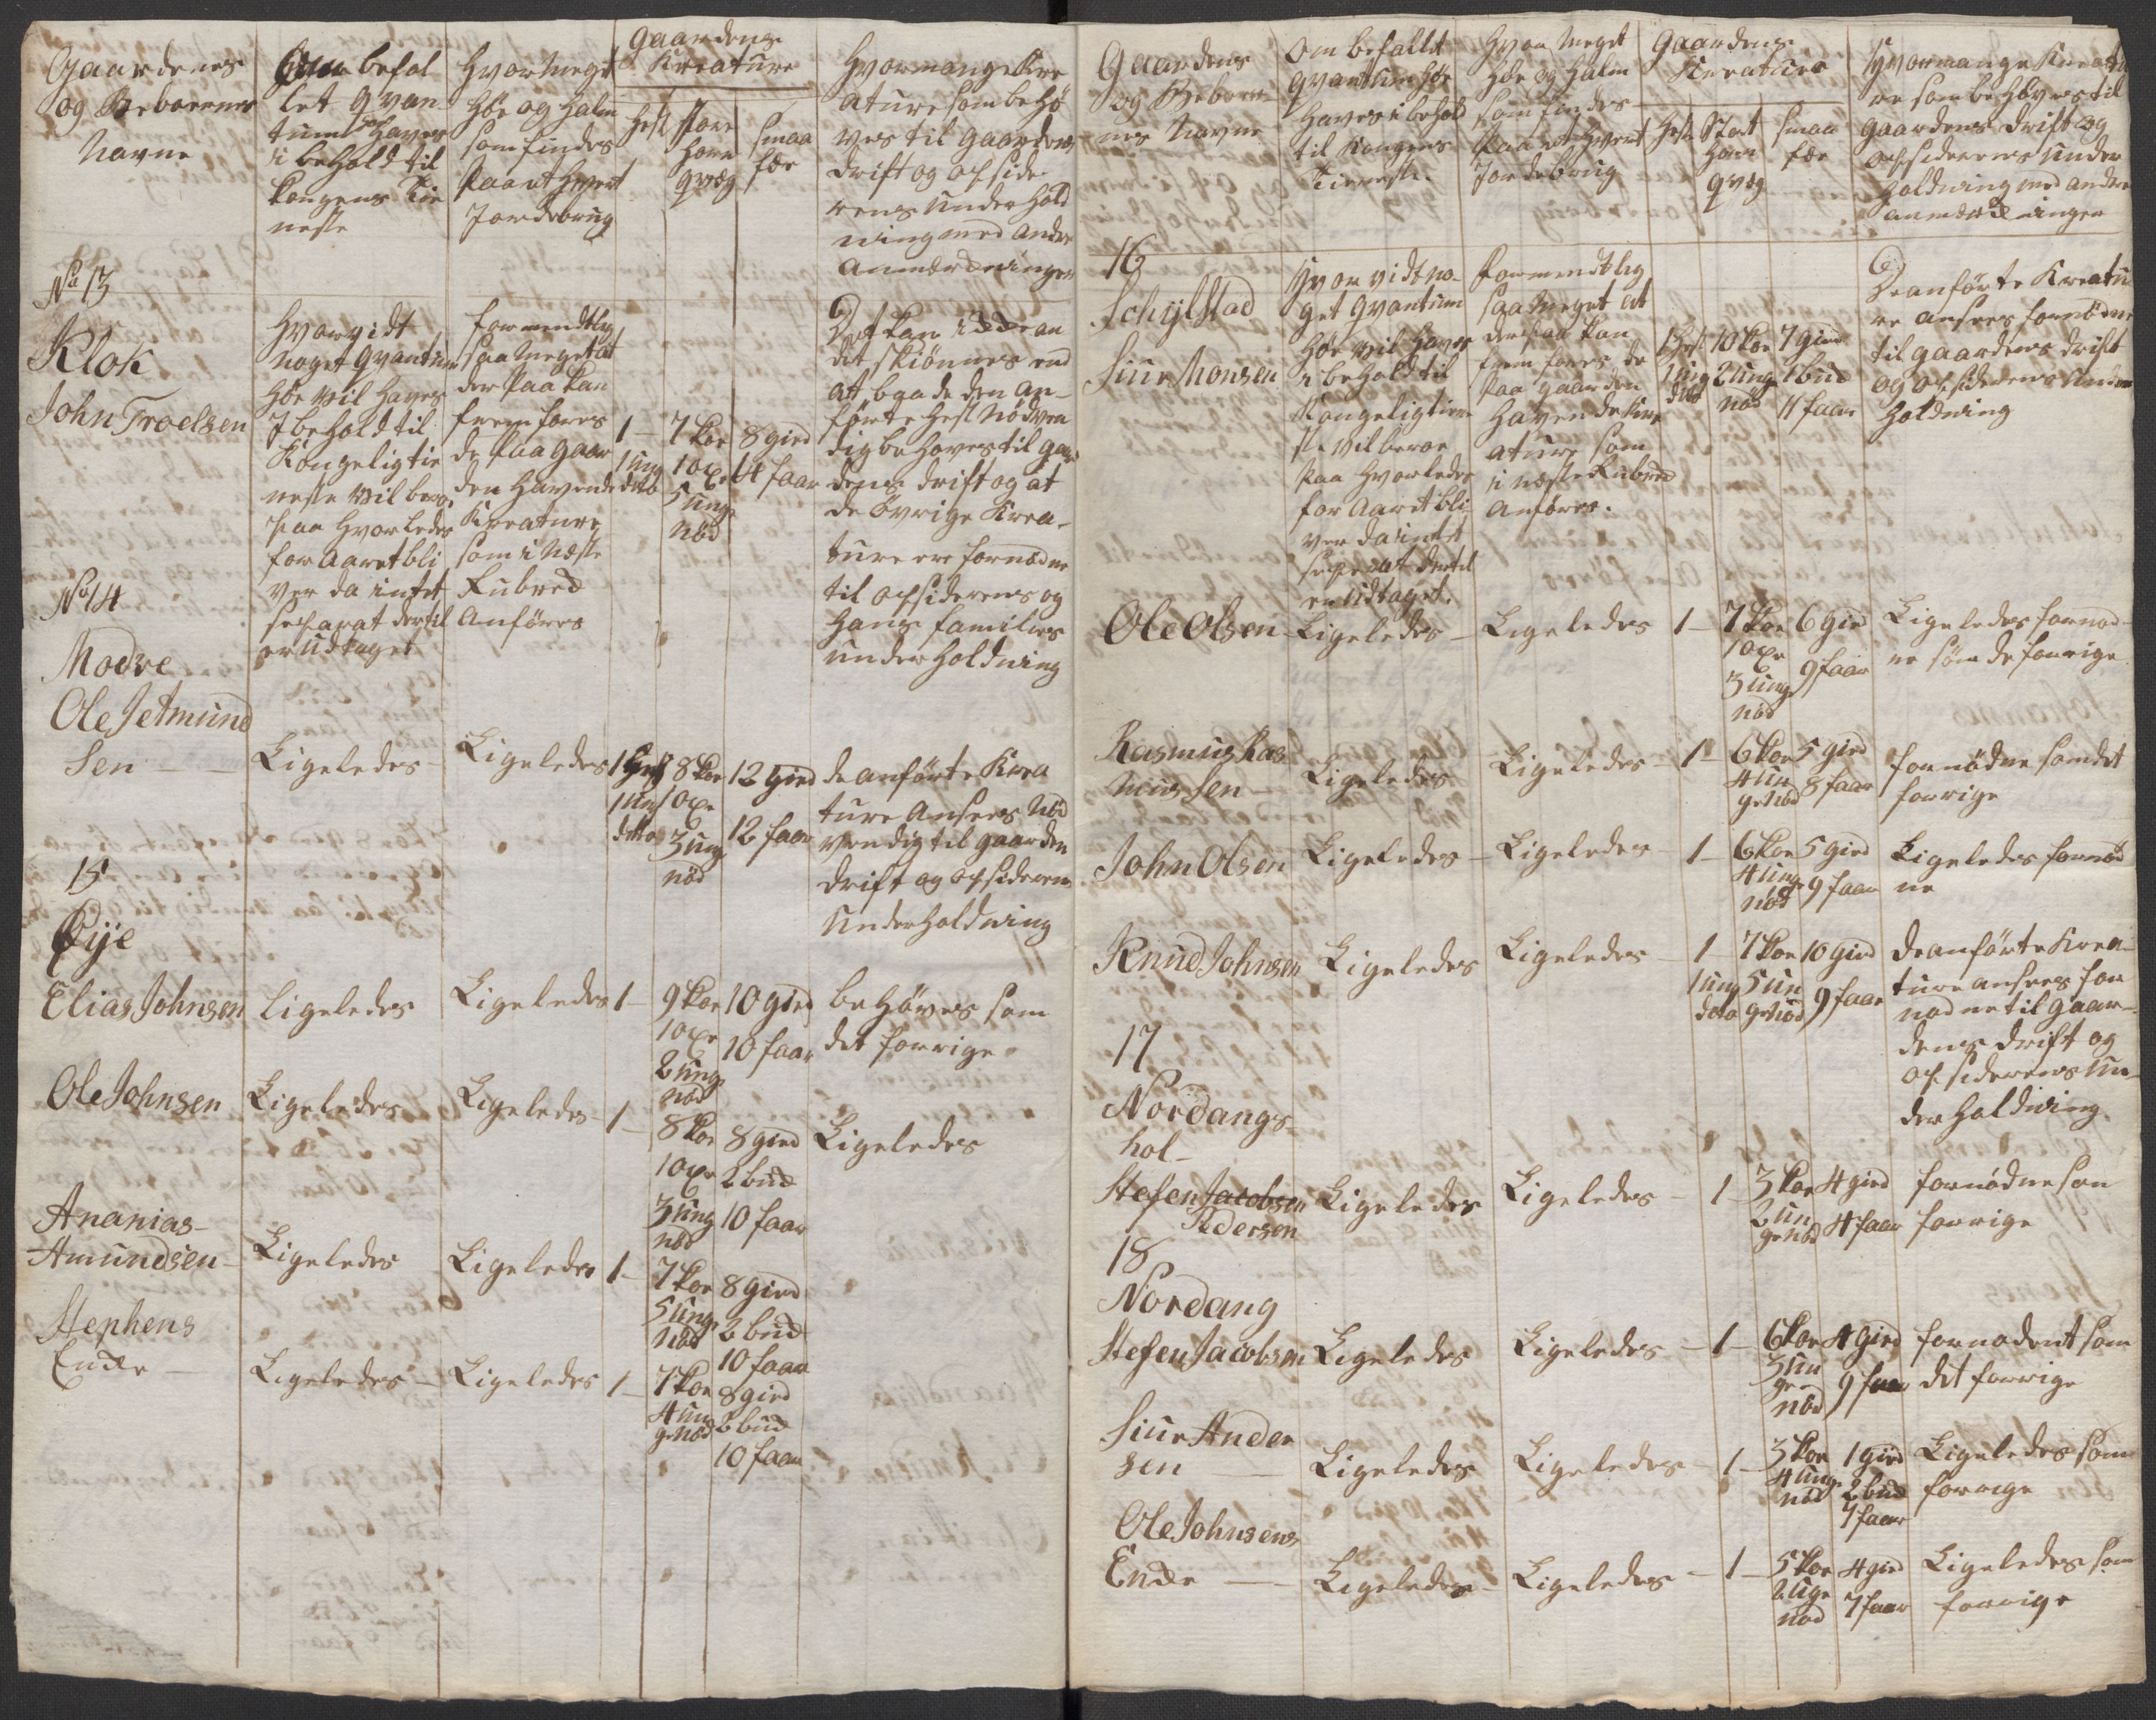 Gaardenes
og Beboernes
Navne
Om befal
let qvan
tum Höe haves
i behold til
Kongens Tie
neste
Hvor Meget
Höe og Halm
som findes
paa et hvert
Jordebrug
Gaardens
Kreature
Hest
store
Horn
qvæg
smaa
fæe
Hvormange Kre
ature som behö
ves til Gaardens
drift og opside
rens underhold
ning med andre
anmærkninger
No 13
Klok
John Troelsen
Hvorvidt
noget qvantum
Höe vil haves
I behold til
Kongelig tie
neste vil beroe
paa hvorledes
for Aaret bli
ver da intet
separat dertil
er udtaget
formendtlig
saa Meget at
der paa kan
fremfores
de paa gaar
den havende
Kreature
som i Næste
Rubrik
Anföres
1
1 ung
dito
7 Kör
1 oxe
5 unge
nöd
8 gied
14 faar
Det kan ikke an
det skiönnes end
at baade den an-
förte Hest nödven
dig behoves til gaar
dens drift og at
de övrige Krea-
ture ere fornödne
til opsiderens og
Hans families
underholdning
No 14
Modve
Ole Jetmund
sen
Ligeledes
Ligeledes
1 Hest
1 ung
ditto
8 Kör
1 oxe
3 ung
nöd
12 gied
12 faar
de anförte Krea
ture ansees Nöd
vendig til gaarden
drift og opsiderens
underholdning
15
Öije
Elias Johnsen
Ligeledes
Ligeledes
1
9 Kör
1 oxe
2 unge
nöd
10 gied
10 faar
behöves som
det forrige
Ole Johnsen
Ligeledes
Ligeledes
1
8 Kör
1 oxe
3 ung
nöd
8 gied
2 bukk
10 faar
Ligeledes
Ananias
Amundsen
Ligeledes
Ligeledes
1
7 Kör
5 unge
nöd
8 gied
2 bukk
10 faar
Stephens
Enke
Ligeledes
Ligeledes
1
7 Kör
4 un
ge nöd
8 gied
2 bukk
10 faar
Gaardens
og Beboer-
nes Navne
Om befallet
qvantum Höe
haves i behold
til Kongens
Tieneste
Hvor Meget
Höe og Halm
som findes
paa et hvert
Jordebrug
Gaardens
Kreature
Hest
Stort
Horn
qvæg
smaa
fæe
Hvormange Kreatu
re som behöves til
Gaardens drift og
opsiderens under
holdning med andre
anmærkninger
16
Schylstad
Siur Monsen
Hvorvidt no-
get qvantum
Höe vil haves
i behold til
Kongelig tiene
ste vil beroe
paa hvorledes
for Aaret bli
ver da intet
seperat dertil
er udtaget.
formendtlig
saa Meget at
derpaa kan
fremfores de
paa gaarden
havende Kre
ature som
i næste Rubrik
anföres.
1 Hest
1 ung
dito
10 Kör
2 ung
nöd
7 gied
1 buk
11 faar
De anförte Kreatu
re ansees fornödne
til gaardens drift
og opsiderens under
holdning
Ole Olsen
Ligeledes
Ligeledes
1
7 Kör
1 oxe
3 ung
nöd
6 gied
9 faar
Ligeledes fornöd-
ne som de forrige
Rasmus Ras
mussen
Ligeledes
Ligeledes
1
6 Kör
4 un
ge nöd
5 gied
8 faar
fornödne som det
forrige
John Olsen
Ligeledes
Ligeledes
1
6 Kör
4 unge
nöd
5 gied
9 faar
Ligeledes fornöd
ne
Knud Johnsen
Ligeledes
Ligeledes
1
1 ung
dito
7 Kör
5 un
ge nöd
10 gied
9 faar
de anförte Krea-
ture ansees for
nödne til gaar-
dens drift og
opsiderens un-
derholdning
17
Nordangs-
hol-
Stefen Jacobsen
Pedersen
Ligeledes
Ligeledes
1
3 Kör
2 un
ge nöd
4 gied
4 faar
fornödne som
forrige
18
Nordang
Stefen Jacobsen
Ligeledes
Ligeledes
1
6 Kör
3 un
ge
nöd
4 gied
9 faar
fornödent som
det forrige
Siur Ander
sen
Ligeledes
Ligeledes
1
3 Kör
4 unge
nöd
1 gied
2 buk
7 faar
Ligeledes som
forrige
Ole Johnsens
Enke
Ligeledes
Ligeledes
1
5 Kör
2 unge
nöd
4 gied
7 faar
Ligeledes som
forrige